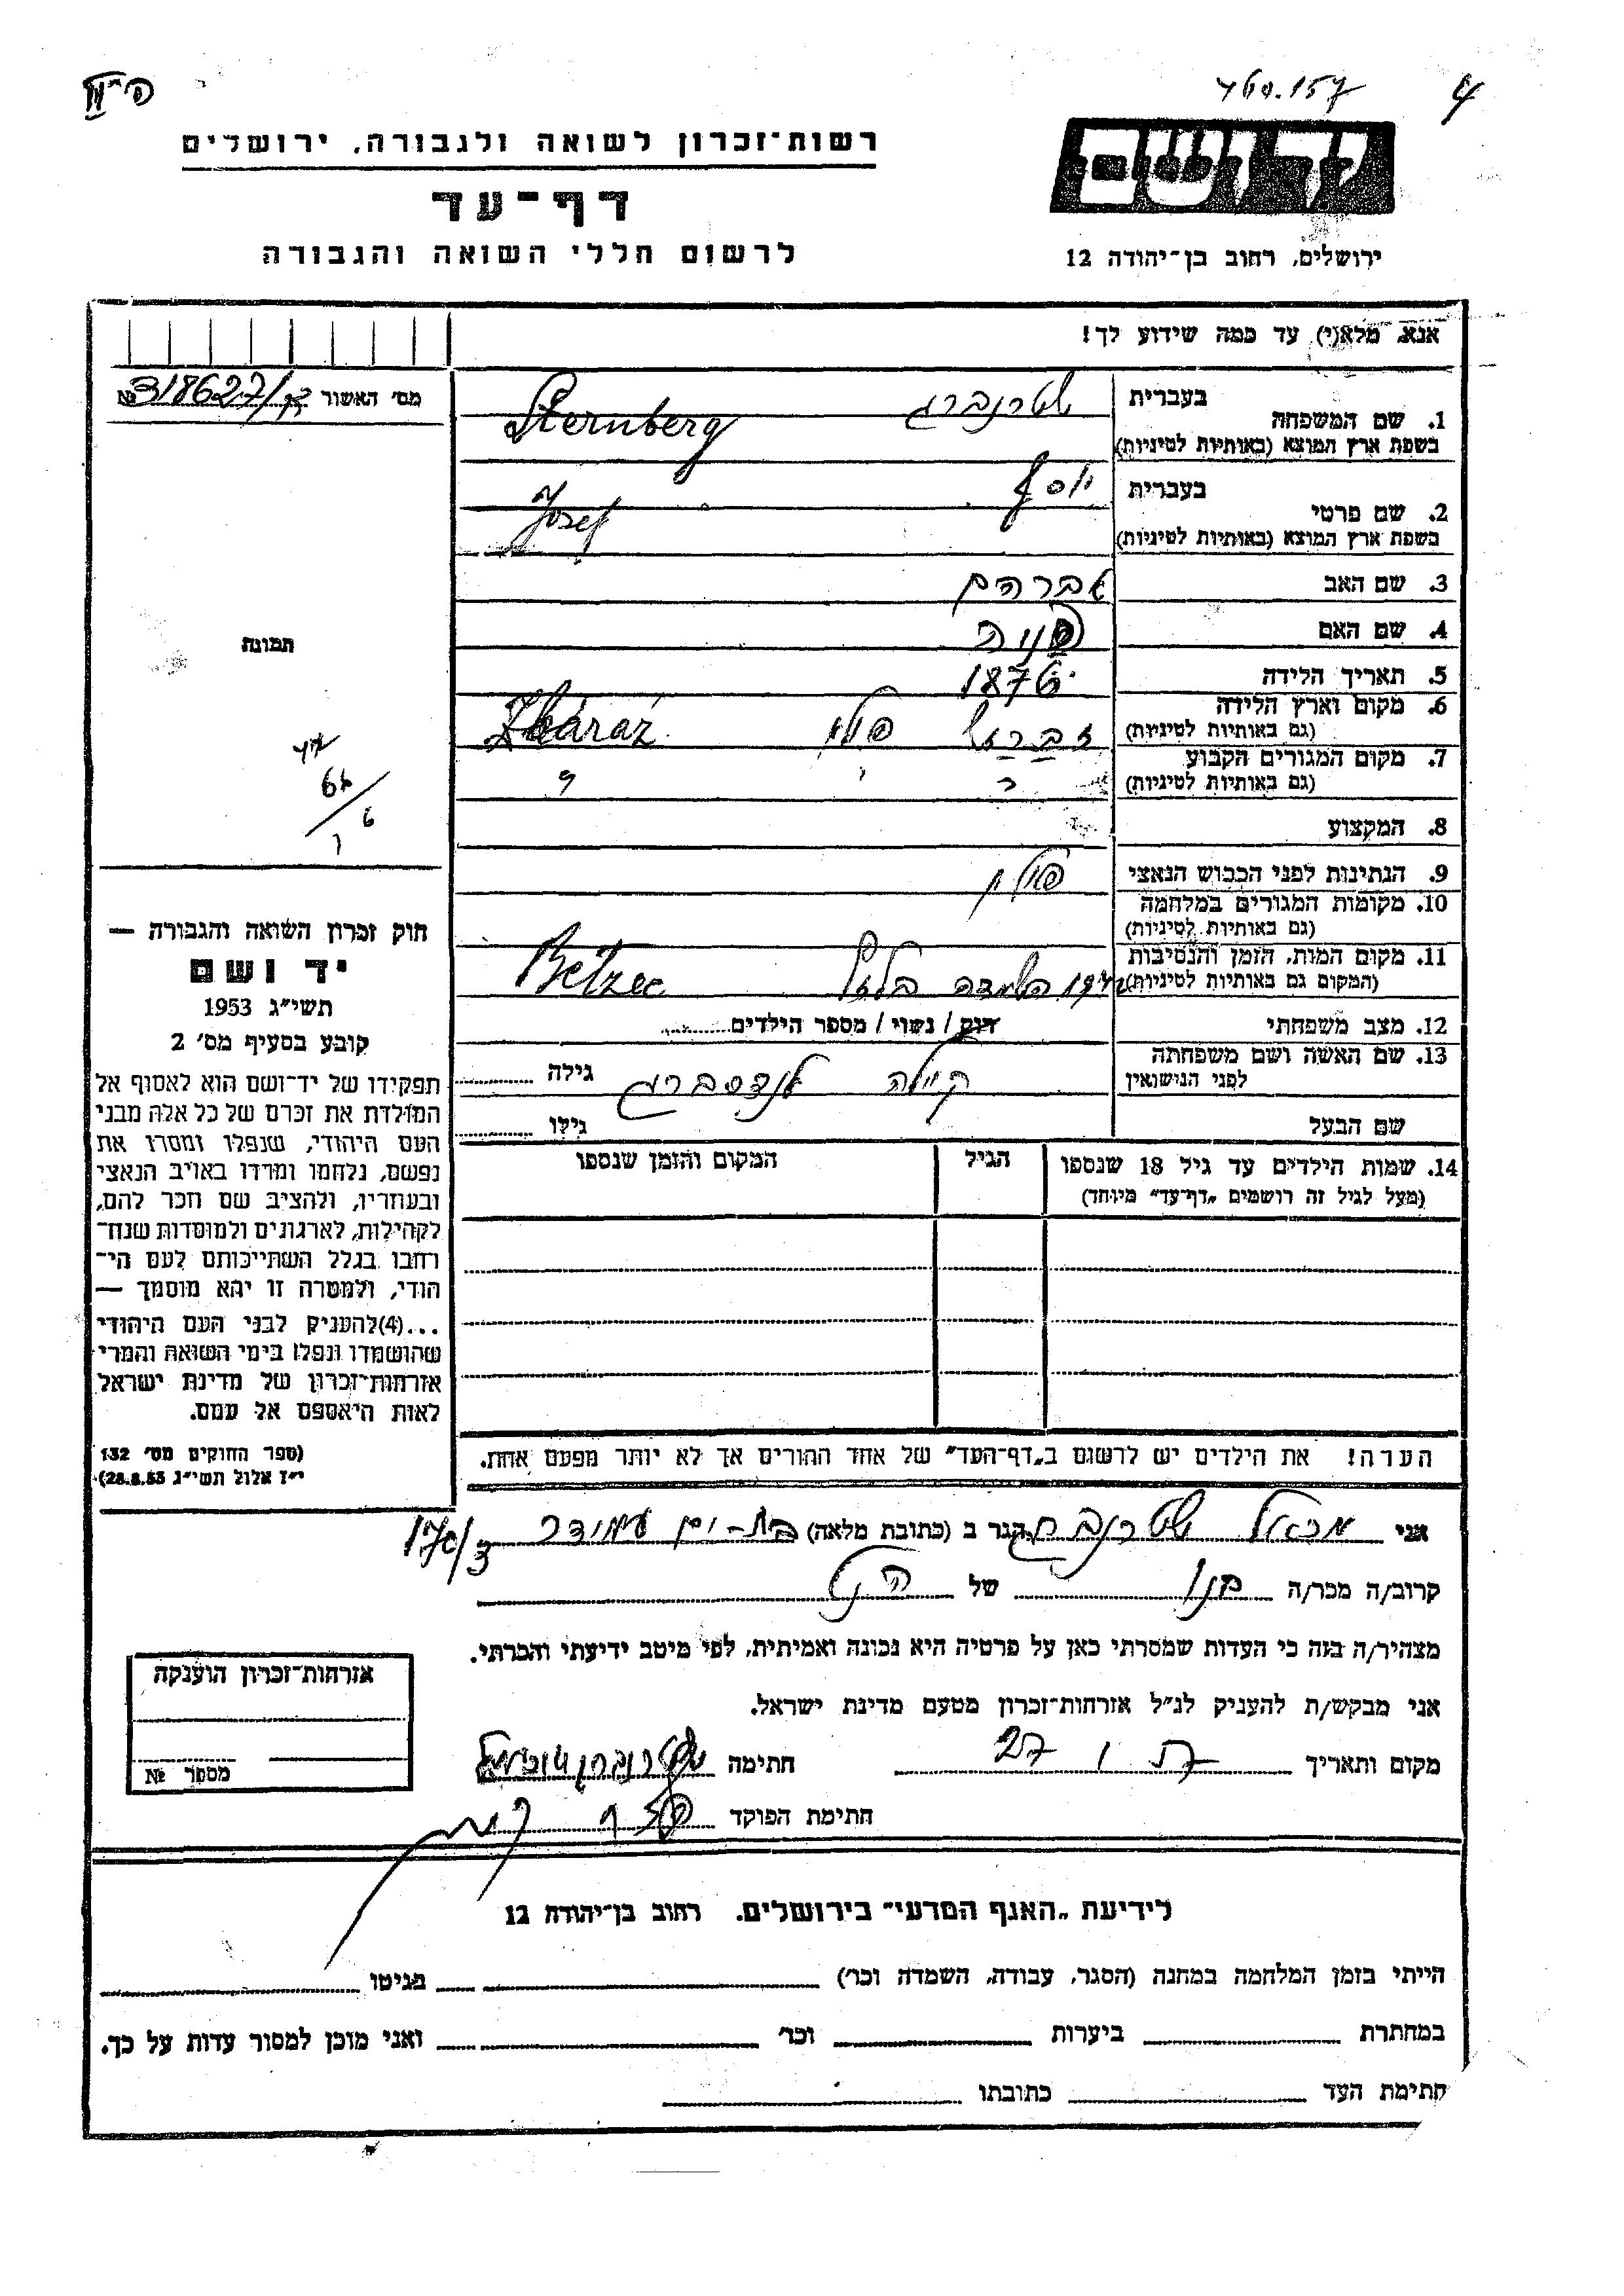 4
רשות־זכרון לשואה ולגבורה, ירושלים
ידושם
דף־עד
לרשום חללי השואה והגבורה
ירושלים, רחוב בן־יהודה 12
אנא, מלא(י) עד כמה שידוע לך!
מס' האשור № 318627/
בעברית שטרנברג
1. שם המשפחה
בשפת ארץ המוצא (באותיות לטיניות) Sternberg
בעברית יוסף
2. שם פרטי
בשפת ארץ המוצא (באותיות לטיניות) Josef
3. שם האב אברהם
4. שם האם
5. תאריך הלידה 1876
6. מקום וארץ הלידה
(גם באותיות לטיניות) זברז' פולין Zbaraż
7. מקום המגורים הקבוע
(גם באותיות לטיניות)
8. המקצוע
9. הנתינות לפני הכבוש הנאצי פולין
10. מקומות המגורים במלחמה
(גם באותיות לטיניות)
11. מקום המות, הזמן והנסיבות
(המקום גם באותיות לטיניות) 1942 השמדה בלזץ Belzec
12. מצב משפחתי רוק / נשוי / מספר הילדים
13. שם האשה ושם משפחתה
לפני הנישואין לנדסברג גילה
שם הבעל גילו
14. שמות הילדים עד גיל 18 שנספו הגיל המקום והזמן שנספו
(מעל לגיל זה רושמים "דף־עד" מיוחד)
הערה! את הילדים יש לרשום ב"דף־העד" של אחד ההורים אך לא יותר מפעם אחת.
תמונה
חוק זכרון השואה והגבורה —
יד ושם
תשי"ג 1953
קובע בסעיף מס' 2
תפקידו של יד־ושם הוא לאסוף אל
המולדת את זכרם של כל אלה מבני
העם היהודי, שנפלו ומסרו את
נפשם, נלחמו ומרדו באויב הנאצי
ובעוזריו, ולהציב שם וזכר להם,
לקהילות, לארגונים ולמוסדות שנח־
רבו בגלל השתייכותם לעם הי־
הודי, ולמטרה זו יהא מוסמך —
...(4)להעניק לבני העם היהודי
שהושמדו ונפלו בימי השואה והמרי
אזרחות־זכרון של מדינת ישראל
לאות היאספם אל עמם.
(ספר החוקים מס' 132
י"ז אלול תשי"ג 28.8.53)
אני שטרנברג הגר ב (כתובת מלאה) בת-ים עמידר
קרוב/ה מכר/ה בנו של הנ"ל
מצהיר/ה בזה כי העדות שמסרתי כאן על פרטיה היא נכונה ואמיתית, לפי מיטב ידיעתי והכרתי.
אני מבקש/ת להעניק לנ"ל אזרחות־זכרון מטעם מדינת ישראל.
מקום ותאריך חתימה
חתימת הפוקד
אזרחות־זכרון הוענקה
מספר №
לידיעת "האגף המדעי" בירושלים, רחוב בן־יהודה 12
הייתי בזמן המלחמה במחנה (הסגר, עבודה, השמדה וכו') בגיטו
במחתרת ביערות וכו' ואני מוכן למסור עדות על כך.
חתימת העד כתובתו